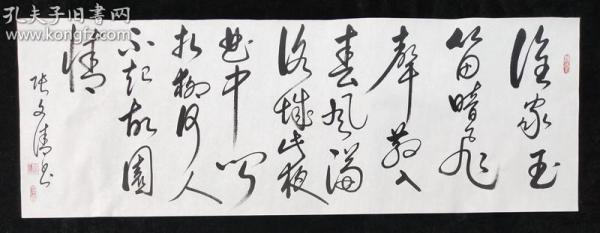 孔夫子旧书网
www.kongfz.com
誰家玉
笛暗飛
聲散入
春風滿
洛城此夜
曲中聞
折柳何人
不起故園
情
張文清書